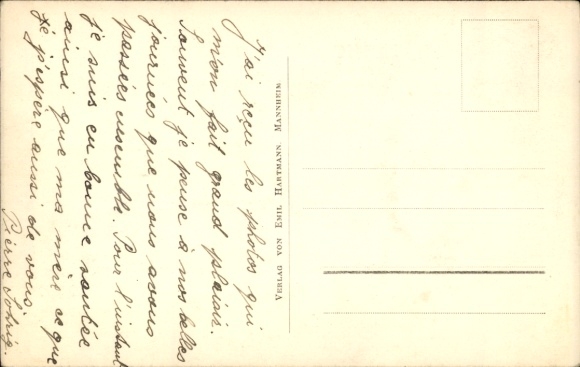 J'ai reçu les photos qui
m'on fait grand plaisir.
Souvent je pense à nos belles
journées que nous avons
passées ensemble. Pour l'instant
je suis en bonne santée
ainsi que ma mère ce que
je j'espère aussi de vous.
Pierre
VERLAG VON EMIL HARTMANN, MANNHEIM